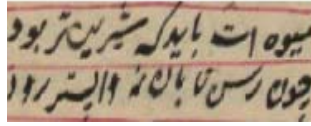 میوه ات باید که شیرین تر بود
چون رسن تابان نه واپستر رود